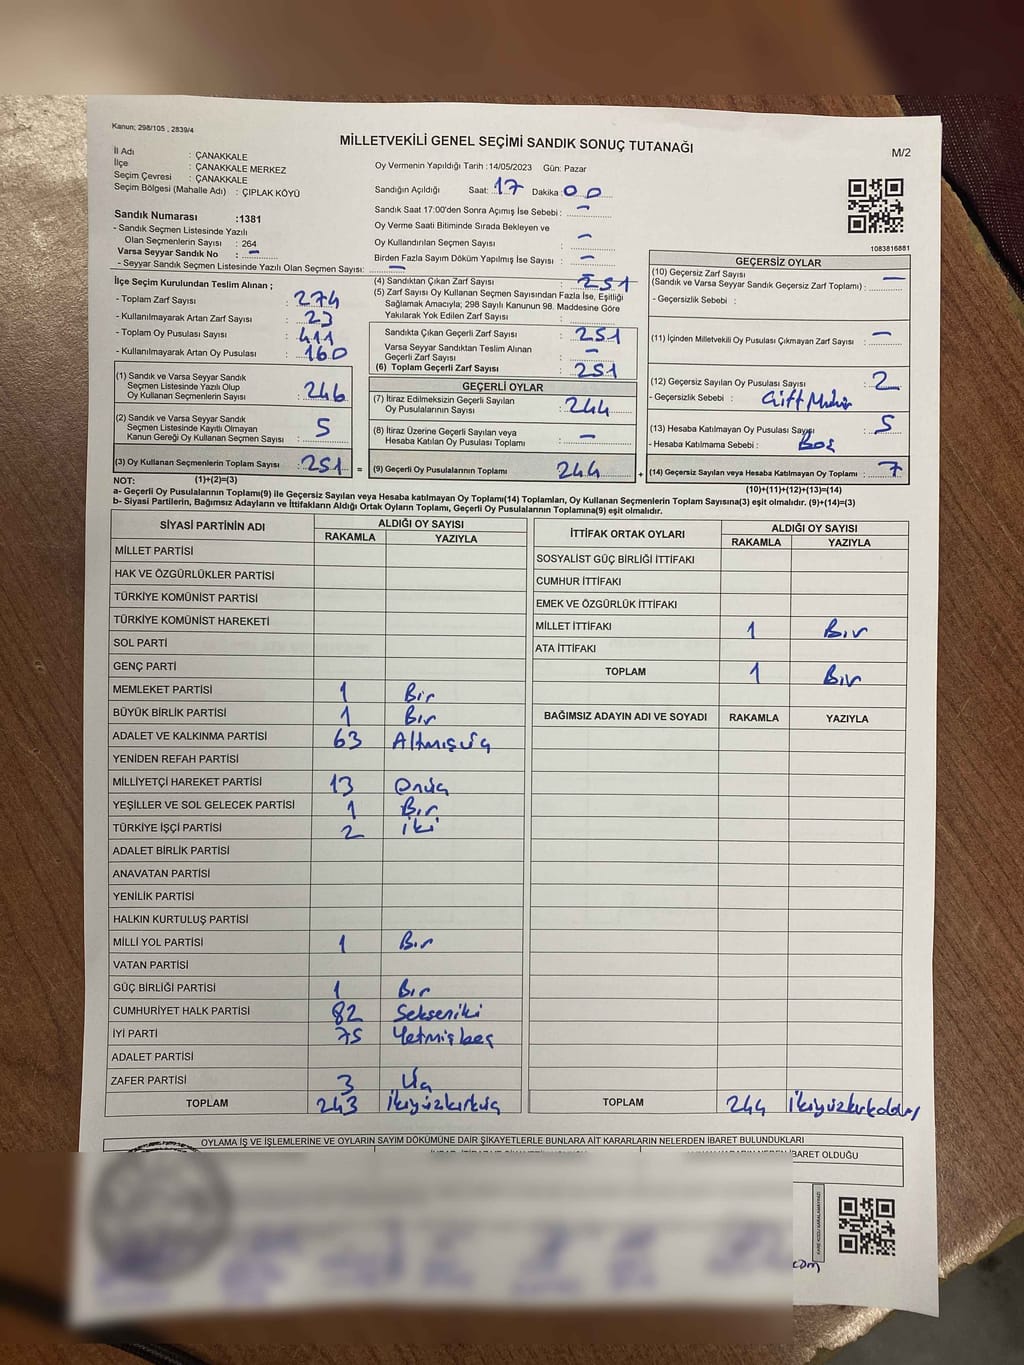 Kanun; 298/105 , 2839/4
MİLLETVEKİLİ GENEL SEÇİMİ SANDIK SONUÇ TUTANAĞI
M/2
İl Adı : ÇANAKKALE
İlçe : ÇANAKKALE MERKEZ
Seçim Çevresi : ÇANAKKALE
Seçim Bölgesi (Mahalle Adı) : ÇIPLAK KÖYÜ
Oy Vermenin Yapıldığı Tarih :14/05/2023 Gün: Pazar
Sandığın Açıldığı Saat: 17 Dakika: 00
Sandık Saat 17:00'den Sonra Açımış İse Sebebi : -
Oy Verme Saati Bitiminde Sırada Bekleyen ve
Oy Kullandırılan Seçmen Sayısı : -
Birden Fazla Sayım Döküm Yapılmış İse Sayısı : -
1083816881
Sandık Numarası :1381
- Sandık Seçmen Listesinde Yazılı
Olan Seçmenlerin Sayısı : 264
Varsa Seyyar Sandık No : -
- Seyyar Sandık Seçmen Listesinde Yazılı Olan Seçmen Sayısı: -
İlçe Seçim Kurulundan Teslim Alınan ;
- Toplam Zarf Sayısı : 274
- Kullanılmayarak Artan Zarf Sayısı : 23
- Toplam Oy Pusulası Sayısı : 411
- Kullanılmayarak Artan Oy Pusulası : 160
(1) Sandık ve Varsa Seyyar Sandık
Seçmen Listesinde Yazılı Olup
Oy Kullanan Seçmenlerin Sayısı : 246
(2) Sandık ve Varsa Seyyar Sandık
Seçmen Listesinde Kayıtlı Olmayan
Kanun Gereği Oy Kullanan Seçmen Sayısı : 5
(3) Oy Kullanan Seçmenlerin Toplam Sayısı : 251 =
(4) Sandıktan Çıkan Zarf Sayısı : 251
(5) Zarf Sayısı Oy Kullanan Seçmen Sayısından Fazla İse, Eşitliği
Sağlamak Amacıyla; 298 Sayılı Kanunun 98. Maddesine Göre
Yakılarak Yok Edilen Zarf Sayısı :
Sandıkta Çıkan Geçerli Zarf Sayısı : 251
Varsa Seyyar Sandıktan Teslim Alınan
Geçerli Zarf Sayısı : -
(6) Toplam Geçerli Zarf Sayısı : 251
GEÇERLİ OYLAR
(7) İtiraz Edilmeksizin Geçerli Sayılan
Oy Pusulalarının Sayısı : 244
(8) İtiraz Üzerine Geçerli Sayılan veya
Hesaba Katılan Oy Pusulası Toplamı : -
(9) Geçerli Oy Pusulalarının Toplamı 244 +
GEÇERSİZ OYLAR
(10) Geçersiz Zarf Sayısı
(Sandık ve Varsa Seyyar Sandık Geçersiz Zarf Toplamı) : -
- Geçersizlik Sebebi :
(11) İçinden Milletvekili Oy Pusulası Çıkmayan Zarf Sayısı : -
(12) Geçersiz Sayılan Oy Pusulası Sayısı : 2
- Geçersizlik Sebebi : Çift Mühür
(13) Hesaba Katılmayan Oy Pusulası Sayısı : 5
- Hesaba Katılmama Sebebi : Boş
(14) Geçersiz Sayılan veya Hesaba Katılmayan Oy Toplamı : 7
NOT: (1)+(2)=(3)
(10)+(11)+(12)+(13)=(14)
a- Geçerli Oy Pusulalarının Toplamı(9) ile Geçersiz Sayılan veya Hesaba katılmayan Oy Toplamı(14) Toplamları, Oy Kullanan Seçmenlerin Toplam Sayısına(3) eşit olmalıdır. (9)+(14)=(3)
b- Siyasi Partilerin, Bağımsız Adayların ve İttifakların Aldığı Ortak Oyların Toplamı, Geçerli Oy Pusulalarının Toplamına(9) eşit olmalıdır.
SİYASİ PARTİNİN ADI ALDIĞI OY SAYISI
RAKAMLA YAZIYLA
MİLLET PARTİSİ
HAK VE ÖZGÜRLÜKLER PARTİSİ
TÜRKİYE KOMÜNİST PARTİSİ
TÜRKİYE KOMÜNİST HAREKETİ
SOL PARTİ
GENÇ PARTİ
MEMLEKET PARTİSİ 1 Bir
BÜYÜK BİRLİK PARTİSİ 1 Bır
ADALET VE KALKINMA PARTİSİ 63 Altmışüç
YENİDEN REFAH PARTİSİ
MİLLİYETÇİ HAREKET PARTİSİ 13 Onüç
YEŞİLLER VE SOL GELECEK PARTİSİ 1 Bır
TÜRKİYE İŞÇİ PARTİSİ 2 iki
ADALET BİRLİK PARTİSİ
ANAVATAN PARTİSİ
YENİLİK PARTİSİ
HALKIN KURTULUŞ PARTİSİ
MİLLİ YOL PARTİSİ 1 Bır
VATAN PARTİSİ
GÜÇ BİRLİĞİ PARTİSİ 1 Bır
CUMHURİYET HALK PARTİSİ 82 Sekseniki
İYİ PARTİ 75 Yetmişbeş
ADALET PARTİSİ
ZAFER PARTİSİ 3 Üç
TOPLAM 243 İkiyüzkırküç
İTTİFAK ORTAK OYLARI ALDIĞI OY SAYISI
RAKAMLA YAZIYLA
SOSYALİST GÜÇ BİRLİĞİ İTTİFAKI
CUMHUR İTTİFAKI
EMEK VE ÖZGÜRLÜK İTTİFAKI
MİLLET İTTİFAKI 1 Bır
ATA İTTİFAKI
TOPLAM 1 Bır
BAĞIMSIZ ADAYIN ADI VE SOYADI RAKAMLA YAZIYLA
TOPLAM 244 İkiyüzkırkdört
OYLAMA İŞ VE İŞLEMLERİNE VE OYLARIN SAYIM DÖKÜMÜNE DAİR ŞİKAYETLERLE BUNLARA AİT KARARLARIN NELERDEN İBARET BULUNDUKLARI
İBARET OLDUĞU